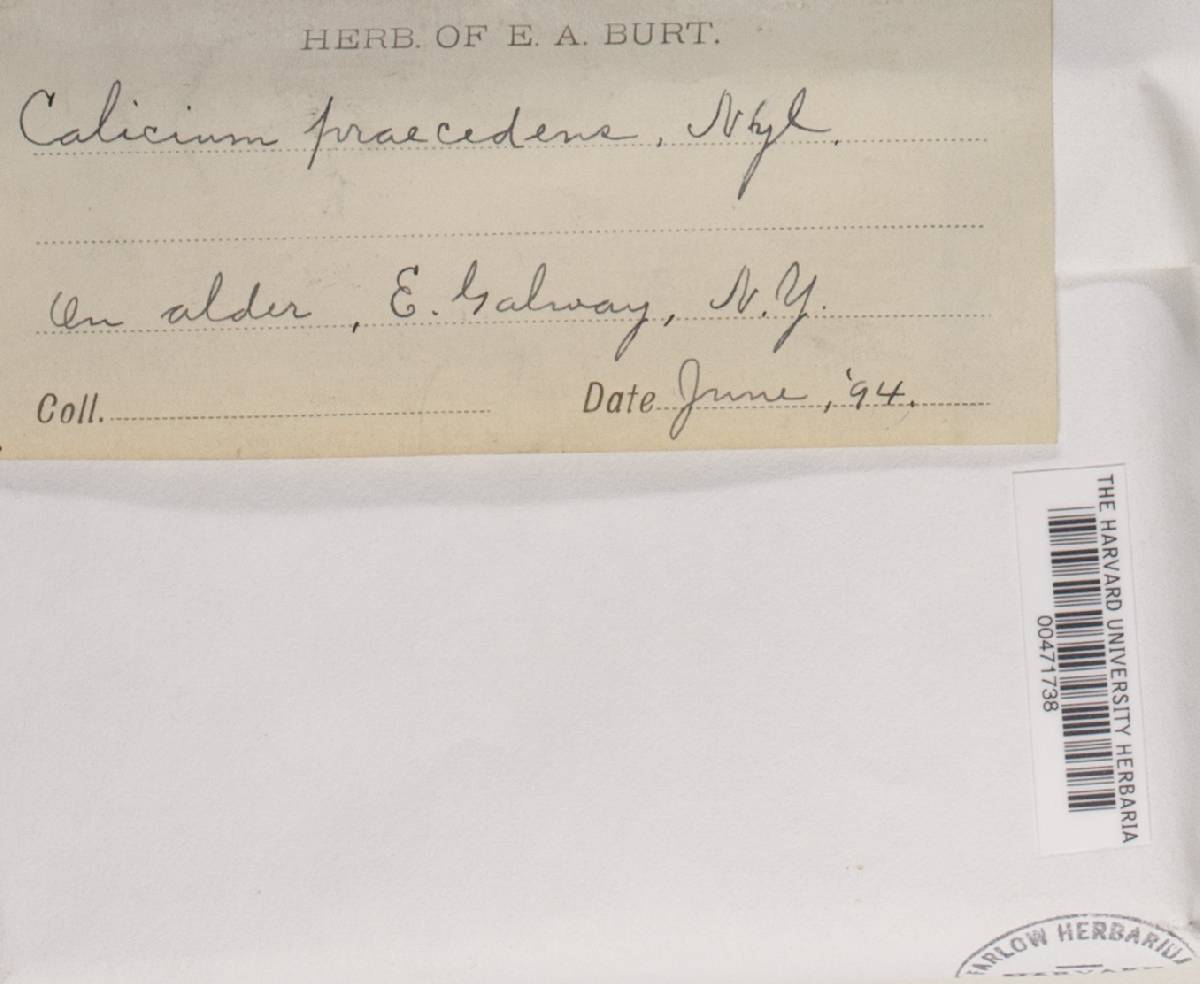 HERB. OF E. A. BURT.
Calicium praecedens, Nyl.
On alder, E. Galway, N.Y.
Coll. Date June, '94.
THE HARVARD UNIVERSITY HERBARIA
00471738
FARLOW HERBARIUM
HARVARD